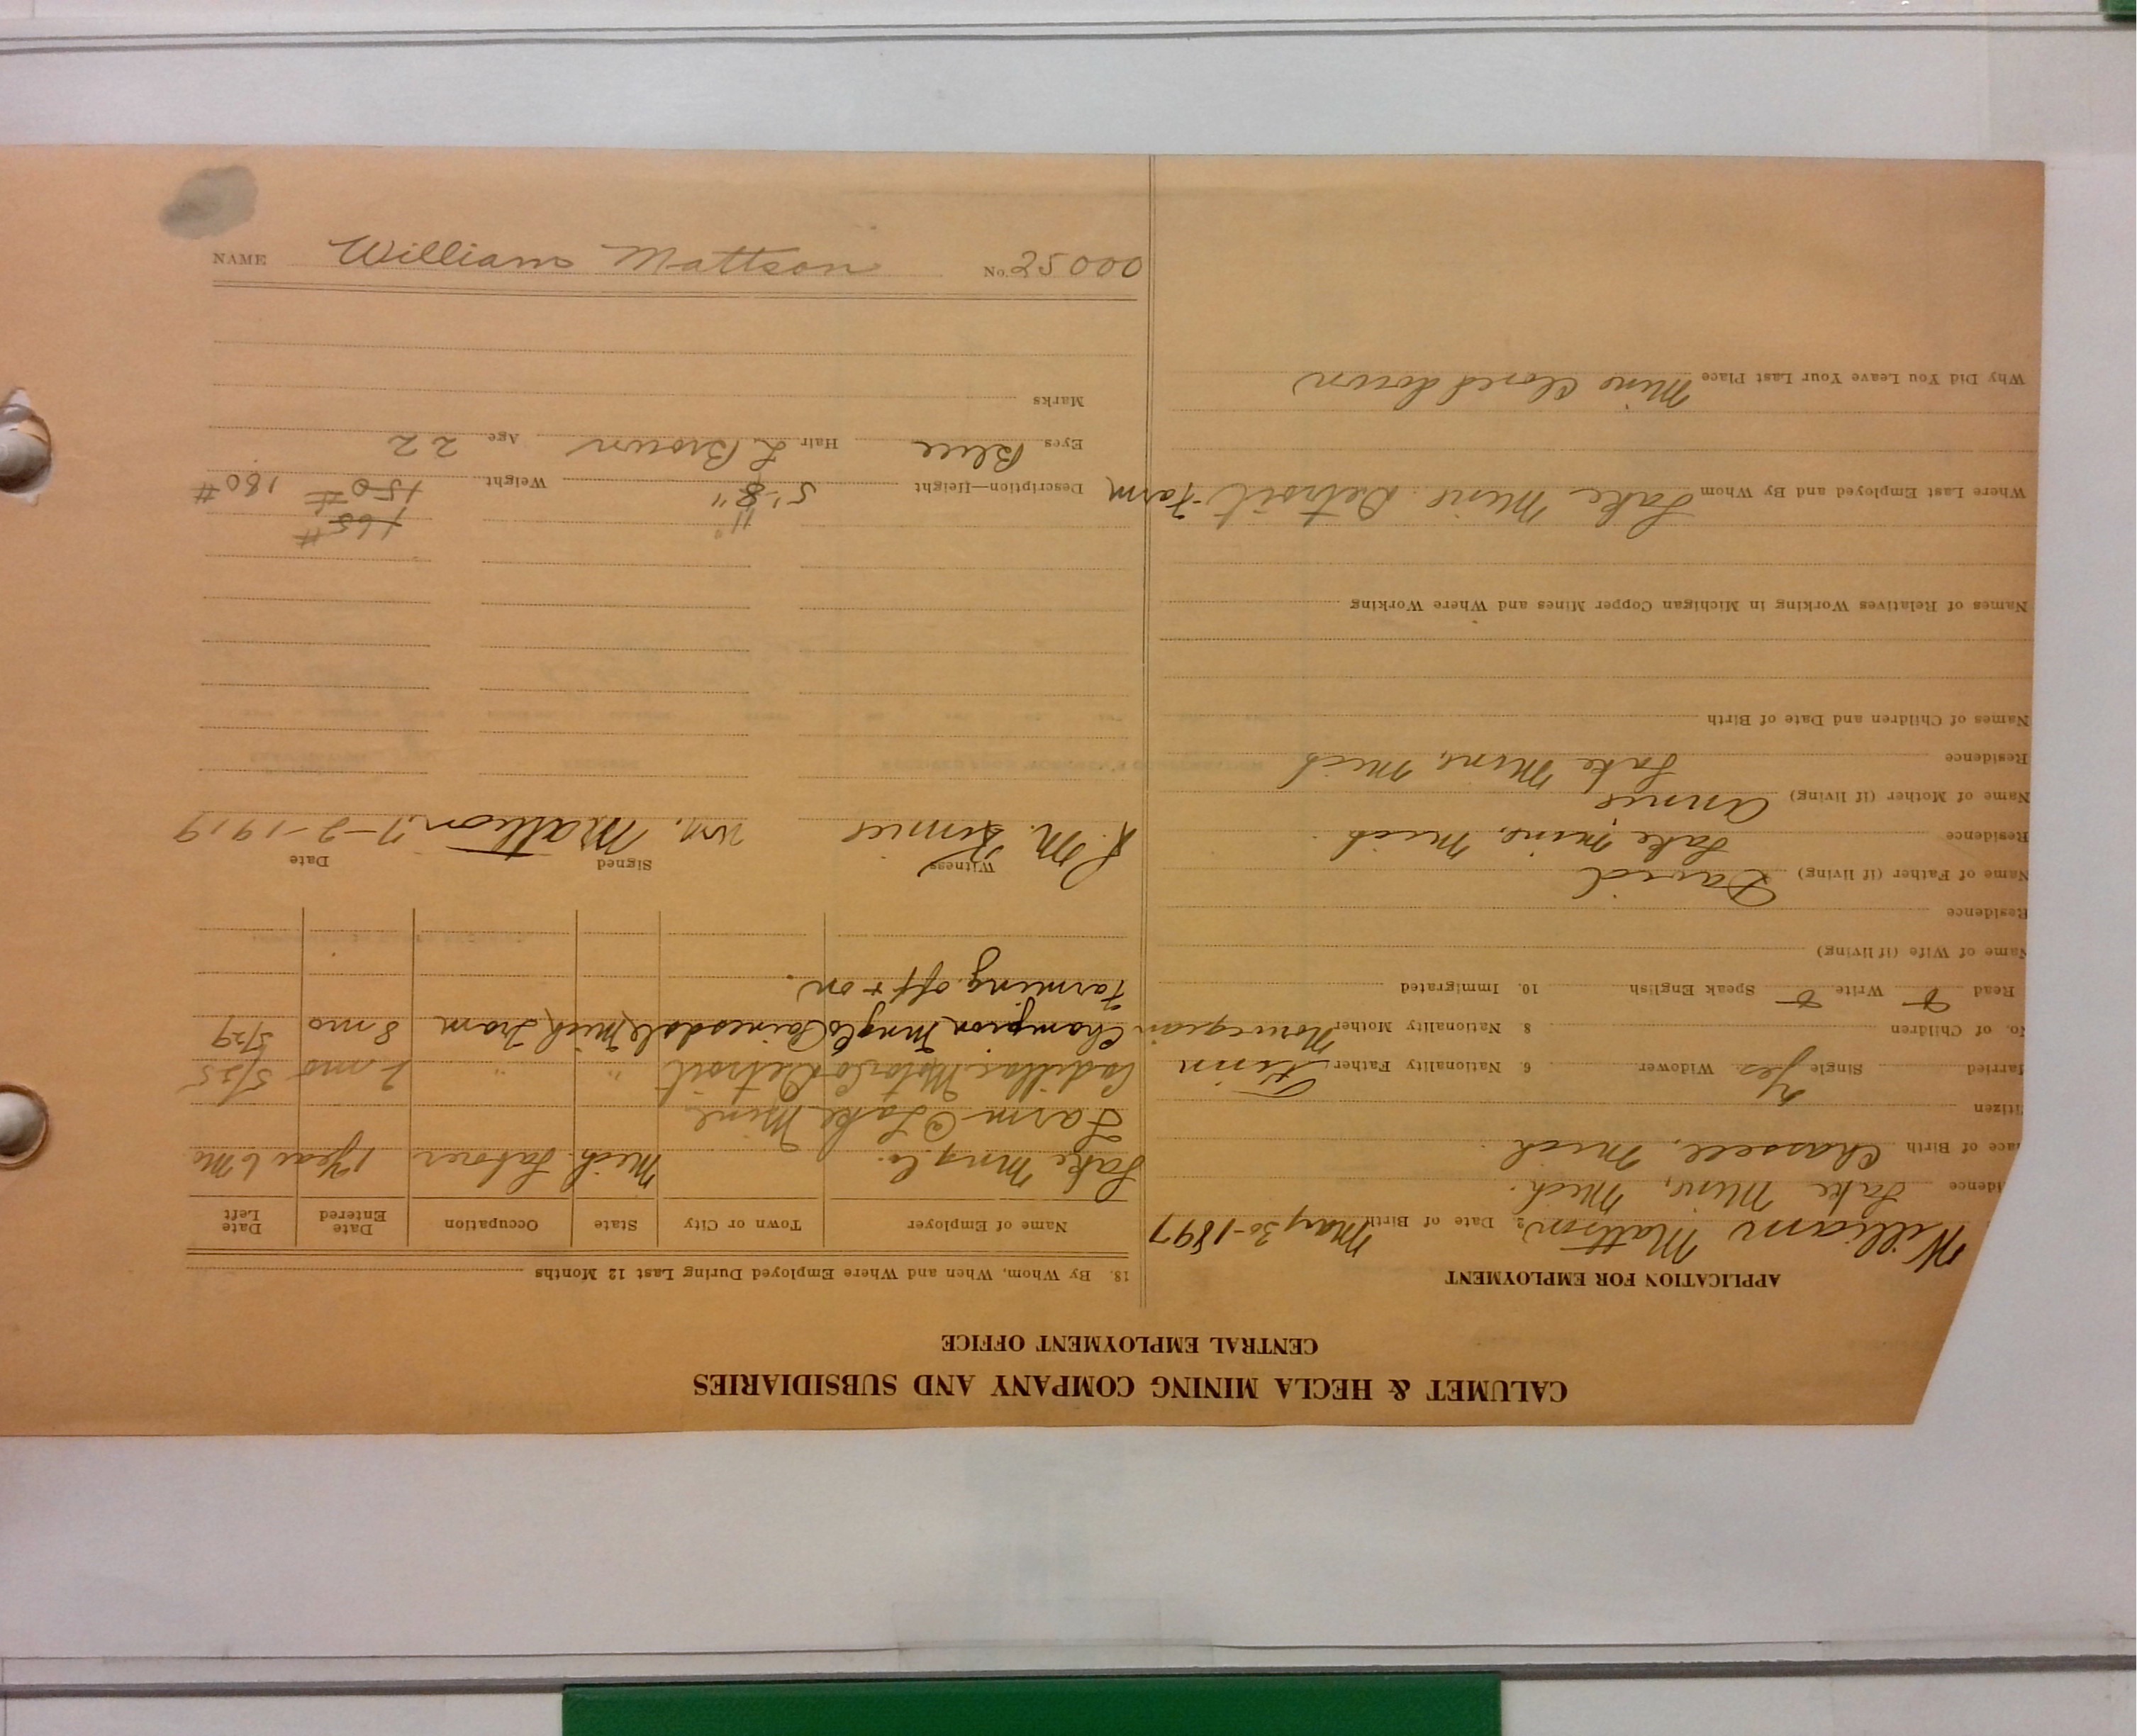 CALUMET & HECLA MINING COMPANY AND SUBSIDIARIES
CENTRAL EMPLOYMENT OFFICE
APPLICATION FOR EMPLOYMENT
William Mattson 2. Date of Birth May 30-1897
idence Lake Mine, Mich.
ace of Birth Chassell, Mich.
itizen
arried Single Yes Widower 6. Nationality Father Finn
o. of Children 8 Nationality Mother Norwegian
Read Write Speak English 10. Immigrated
Name of Wife (if living)
Residence
Name of Father (if living) David
Residence Lake Mine, Mich.
Name of Mother (if living) Annie
Residence Lake Mine, Mich
Names of Children and Date of Birth
Names of Relatives Working in Michigan Copper Mines and Where Working
Where Last Employed and By Whom Lake Mine Detroit-Farm
Why Did You Leave Your Last Place Mine Closed down
18. By Whom, When and Where Employed During Last 12 Months
Name of Employer Town or City State Occupation Date Entered Date Left
Lake Mng. Co. Mich. Laborer 1 Year 6 Mo
Farm @ Lake Mine
Cadillac Motor Co Detroit " " 2 mo 5/25
Champion Mng Co Painesdale Mich Tram 8 mo 5/29
Farming off + on.
Witness Signed Date
Wm. Mattson 7-2-1919
11"
165#
Description—Height 5'.8" Weight 150# 180#
Eyes Blue Hair L Brown Age 22
Marks
NAME William Mattson No. 25000